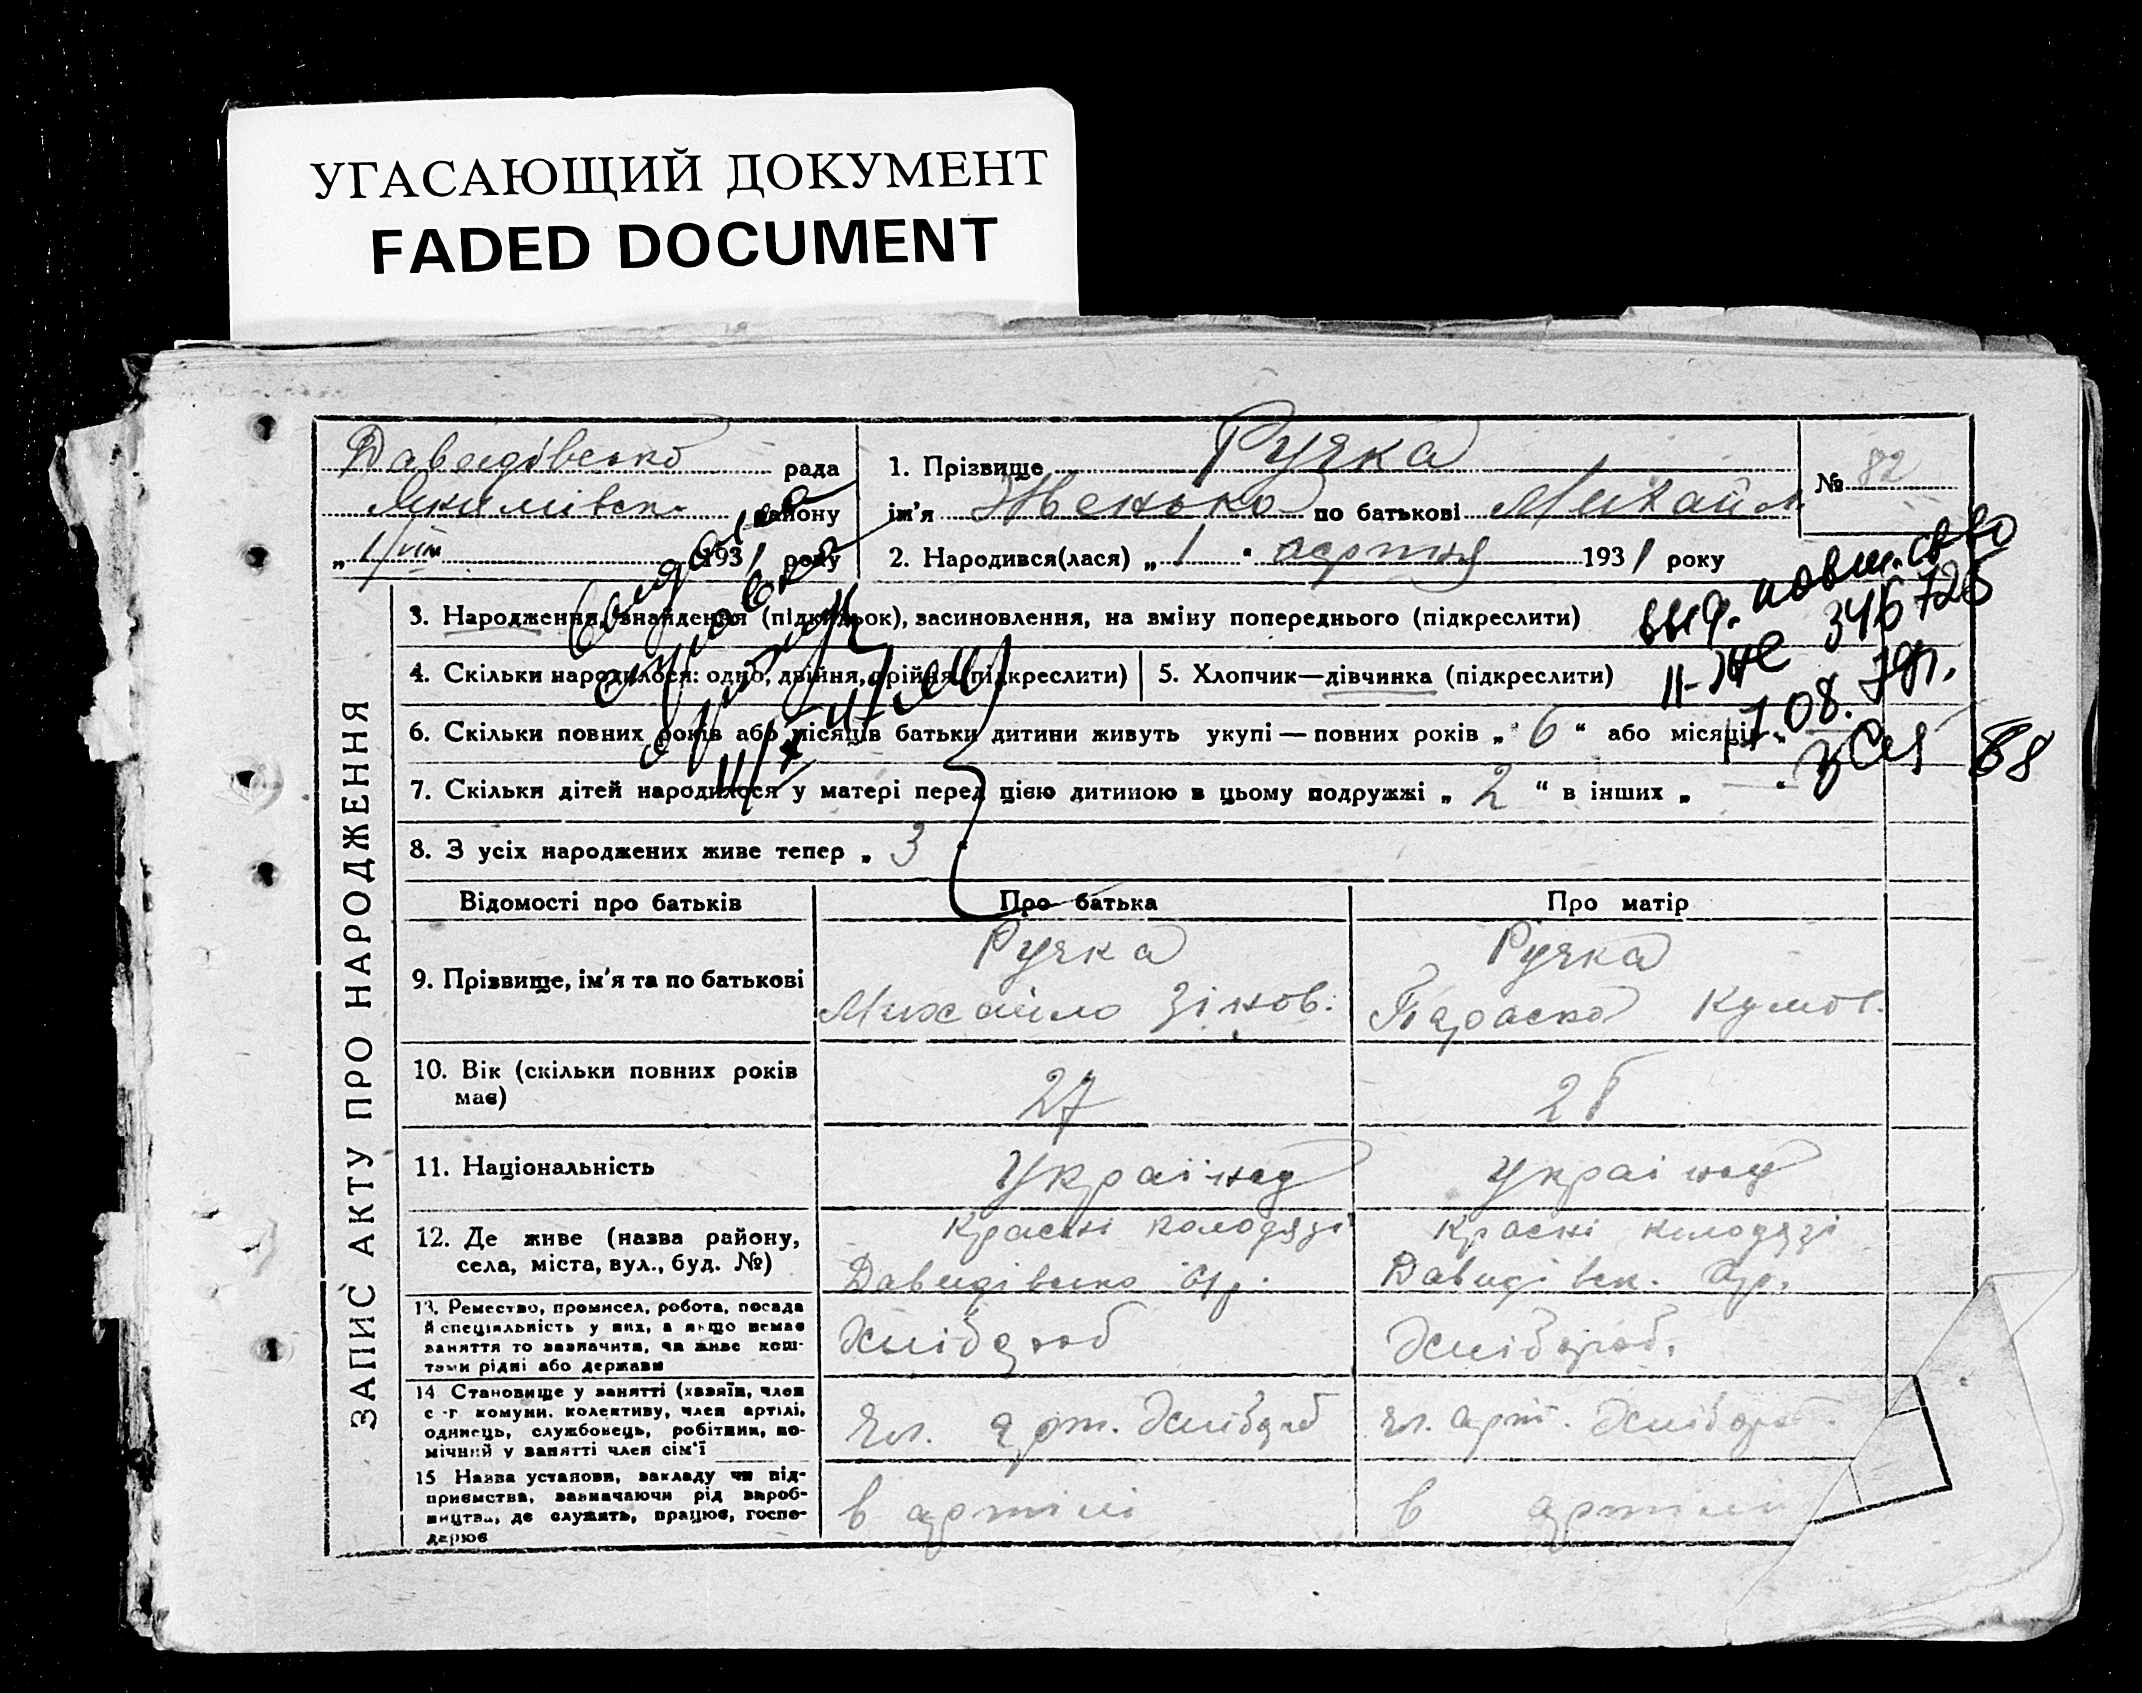 УГАСАЮЩИЙ ДОКУМЕНТ
FADED DOCUMENT
Давидівсько рада
Якимівськ. району
„1/VIII 1931 року
1. Прізвище Ручка
ім'я по батькові Михайл.
2. Народився(лася) „1" серпня 1931 року
№ 82
ЗАПИС АКТУ ПРО НАРОДЖЕННЯ
3. Народження, знайдення (підкидьок), засиновлення, на вміну попереднього (підкреслити)
4. Скільки народилося: одно, двійня, трійня (підкреслити)
5. Хлопчик—дівчинка (підкреслити)
выд. повт. св-во
II-ЖС 346728
1.08. 79г.
6. Скільки повних років або місяців батьки дитини живуть укупі — повних років „6" або місяців
7. Скільки дітей народилося у матері перед цією дитиною в цьому подружжі „2" в інших „ — "
8. З усіх народжених живе тепер „3"
Відомості про батьків Про батька Про матір
9. Прізвище, ім'я та по батькові
Ручка
Михайло Зінов.
Ручка
Параска
10. Вік (скільки повних років має)
27
11. Національність
12. Де живе (назва району, села, міста, вул., буд. №)
Красні колодязі
Давидівсько
Красні колодязі
Давидівск.
13. Ремество, промисел, робота, посада
й спеціяльність у них, а якщо немає
заняття то зазначити, чи живе кош-
тами рідні або держави
Хлібороб
Хлібороб.
14 Становище у занятті (хазяїн, член
с-г комуни, колективу, член артілі,
одинець, службовець, робітник, по-
мічний у занятті член сім'ї
Чл. арт. Хлібороб
Чл. арт. Хлібороб.
15 Назва установи, закладу чи під-
приємства, зазначаючи рід вироб-
ництва, де служить, працює, госпо-
дарює
в артілі
в артілі